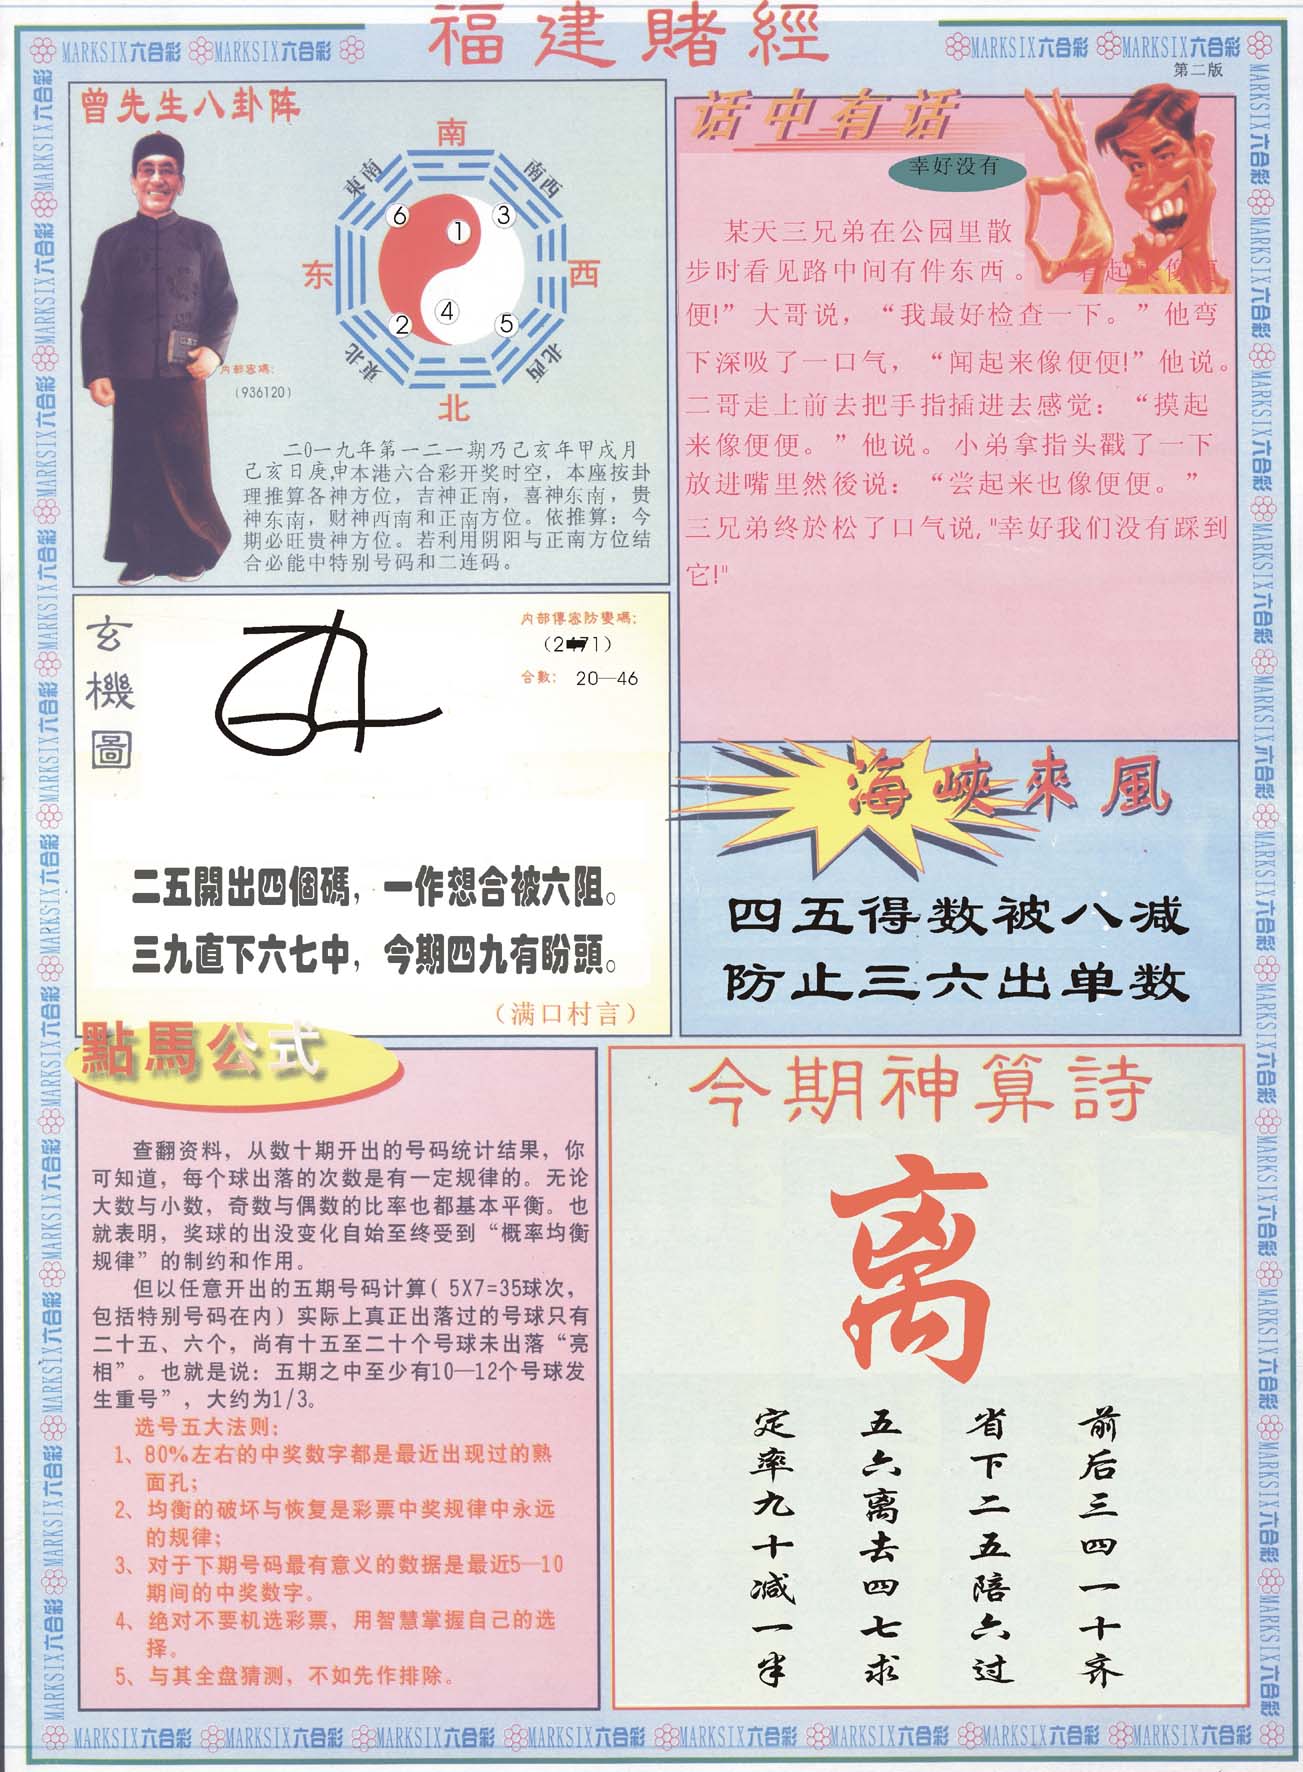 福建賭經
MARKSIX六合彩 MARKSIX六合彩
MARKSIX六合彩 MARKSIX六合彩
第二版
曾先生八卦阵
南
東南
南西
6
1
3
东
西
2
4
5
東北
北西
北
内部密碼:
(936120)
二〇一九年第一二一期乃己亥年甲戌月
己亥日庚,申本港六合彩开奖时空，本座按卦
理推算各神方位，吉神正南，喜神东南，贵
神东南，财神西南和正南方位。依推算：今
期必旺贵神方位。若利用阴阳与正南方位结
合必能中特别号码和二连码。
话中有话
幸好没有
某天三兄弟在公园里散
步时看见路中间有件东西。“看起来像便
便!”大哥说，“我最好检查一下。”他弯
下深吸了一口气，“闻起来像便便!”他说。
二哥走上前去把手指插进去感觉：“摸起
来像便便。”他说。小弟拿指头戳了一下
放进嘴里然後说：“尝起来也像便便。”
三兄弟终於松了口气说,"幸好我们没有踩到
它!"
玄機圖
内部傳密防變碼:
合數: 20—46
二五開出四個碼，一作想合被六阻。
三九直下六七中，今期四九有盼頭。
（满口村言）
海峽來風
四五得数被八减
防止三六出单数
點馬公式
查翻资料，从数十期开出的号码统计结果，你
可知道，每个球出落的次数是有一定规律的。无论
大数与小数，奇数与偶数的比率也都基本平衡。也
就表明，奖球的出没变化自始至终受到“概率均衡
规律”的制约和作用。
但以任意开出的五期号码计算( 5X7=35球次，
包括特别号码在内）实际上真正出落过的号球只有
二十五、六个，尚有十五至二十个号球未出落“亮
相”。也就是说：五期之中至少有10—12个号球发
生重号”，大约为1/3。
选号五大法则：
1、80%左右的中奖数字都是最近出现过的熟
面孔；
2、均衡的破坏与恢复是彩票中奖规律中永远
的规律；
3、对于下期号码最有意义的数据是最近5—10
期间的中奖数字。
4、绝对不要机选彩票，用智慧掌握自己的选
择。
5、与其全盘猜测，不如先作排除。
今期神算詩
离
前后三四一十齐
省下二五陪六过
五六离去四七求
定率九十减一半
MARKSIX六合彩 MARKSIX六合彩 MARKSIX六合彩 MARKSIX六合彩 MARKSIX六合彩 MARKSIX六合彩 MARKSIX六合彩 MARKSIX六合彩